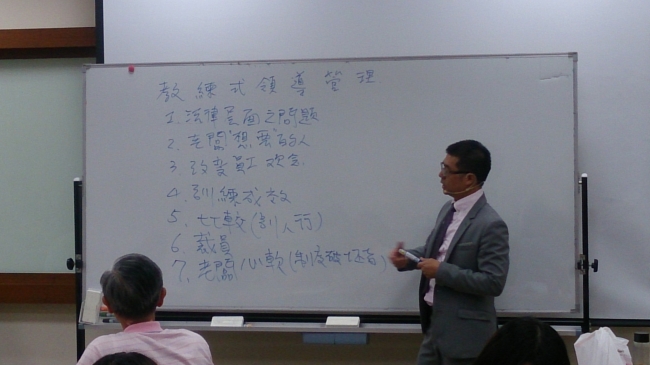 教練式領導管理
1. 法律层面之問題
2. 老闆"想要"的人
3. 改变員工
4. 訓練成效
5. 比較(別人行)
6. 裁員
7. 老闆心軟(制度破坏者)